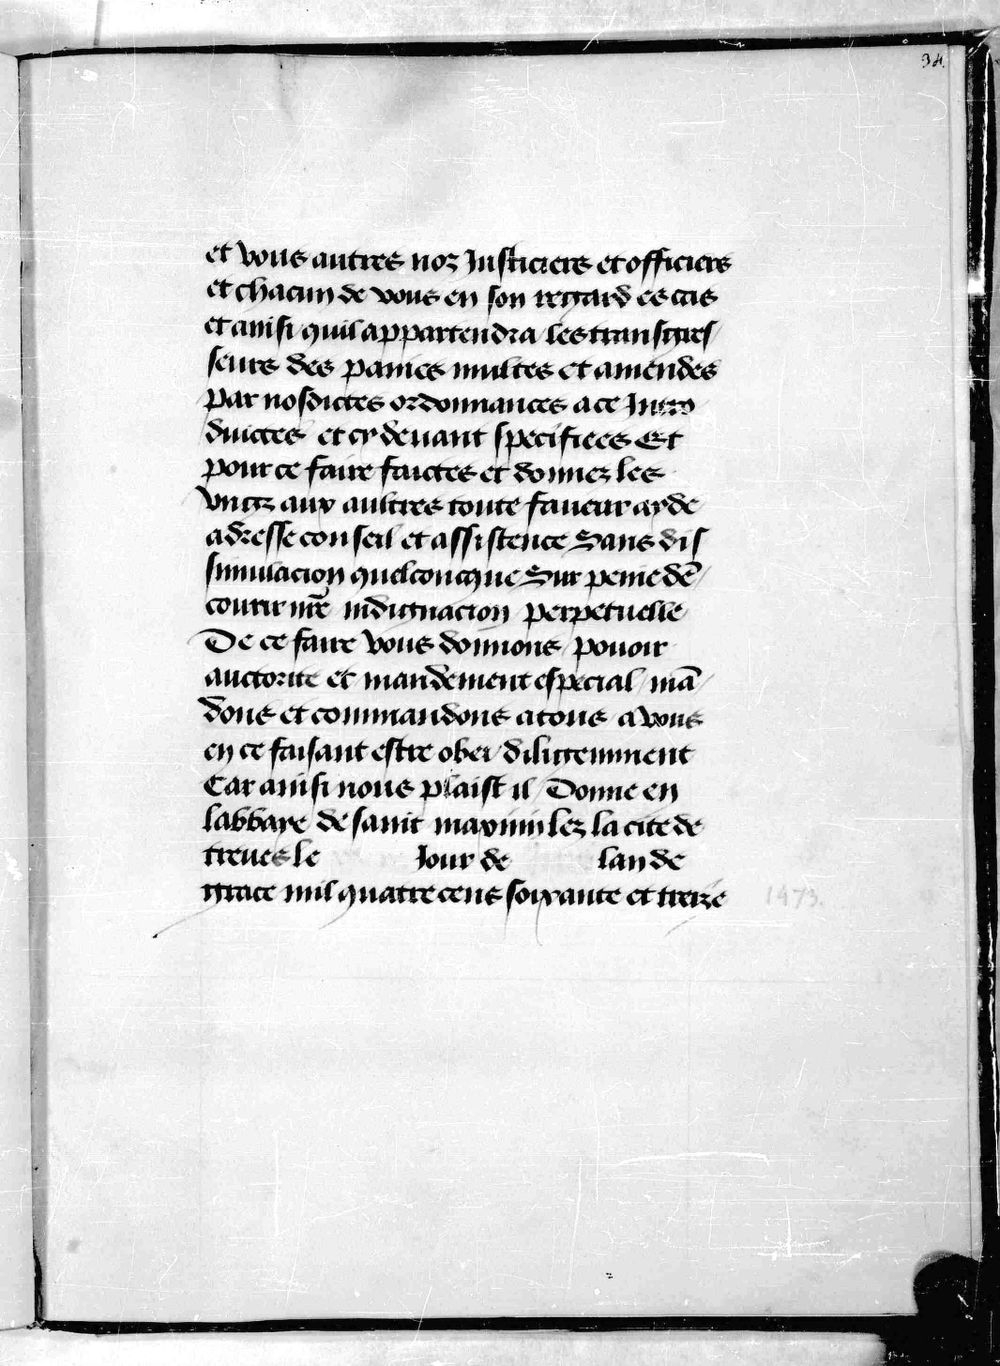 34
et vous autres noz Justiciers et officiers
et chacun de vous en son regard es cas
et ainsi quil appartendra / les transgres/
seurs des paines multes et amendes
par nosdictes ordonnances a ce Intro
duictes et cy devant specifiees Et
pour ce faire faictes et donnez les
vngz aux aultres toute faueur ayde
adresse conseil et assistence Sans dis
simulacion quelconcque Sur peine dē/
courir nr̄e indignacion perpetuelle
De ce faire Vous donnons / pouoir
auctorite et mandement especial / mā/
dons et commandons a tous a vous
en ce faisant estre obei / diligemment
Car ainsi nous plaist il / Donne en
labbaye de saint maximin lez la cite de
treues le Jour de lan de
grace mil quatre cens soixante et treize
1473.